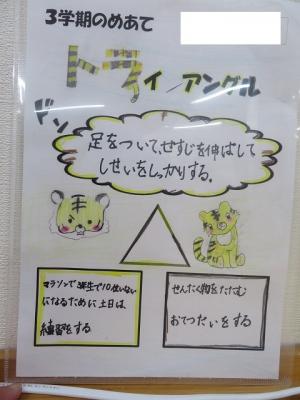 3学期のめあて
トライ/アングル
ドン
足をついて、せすじを伸ばして
しせいをしっかりする。
マラソンで3年生で10位いない
になるために土日は、
練習をする
せんたく物をたたむ
おてつだいをする